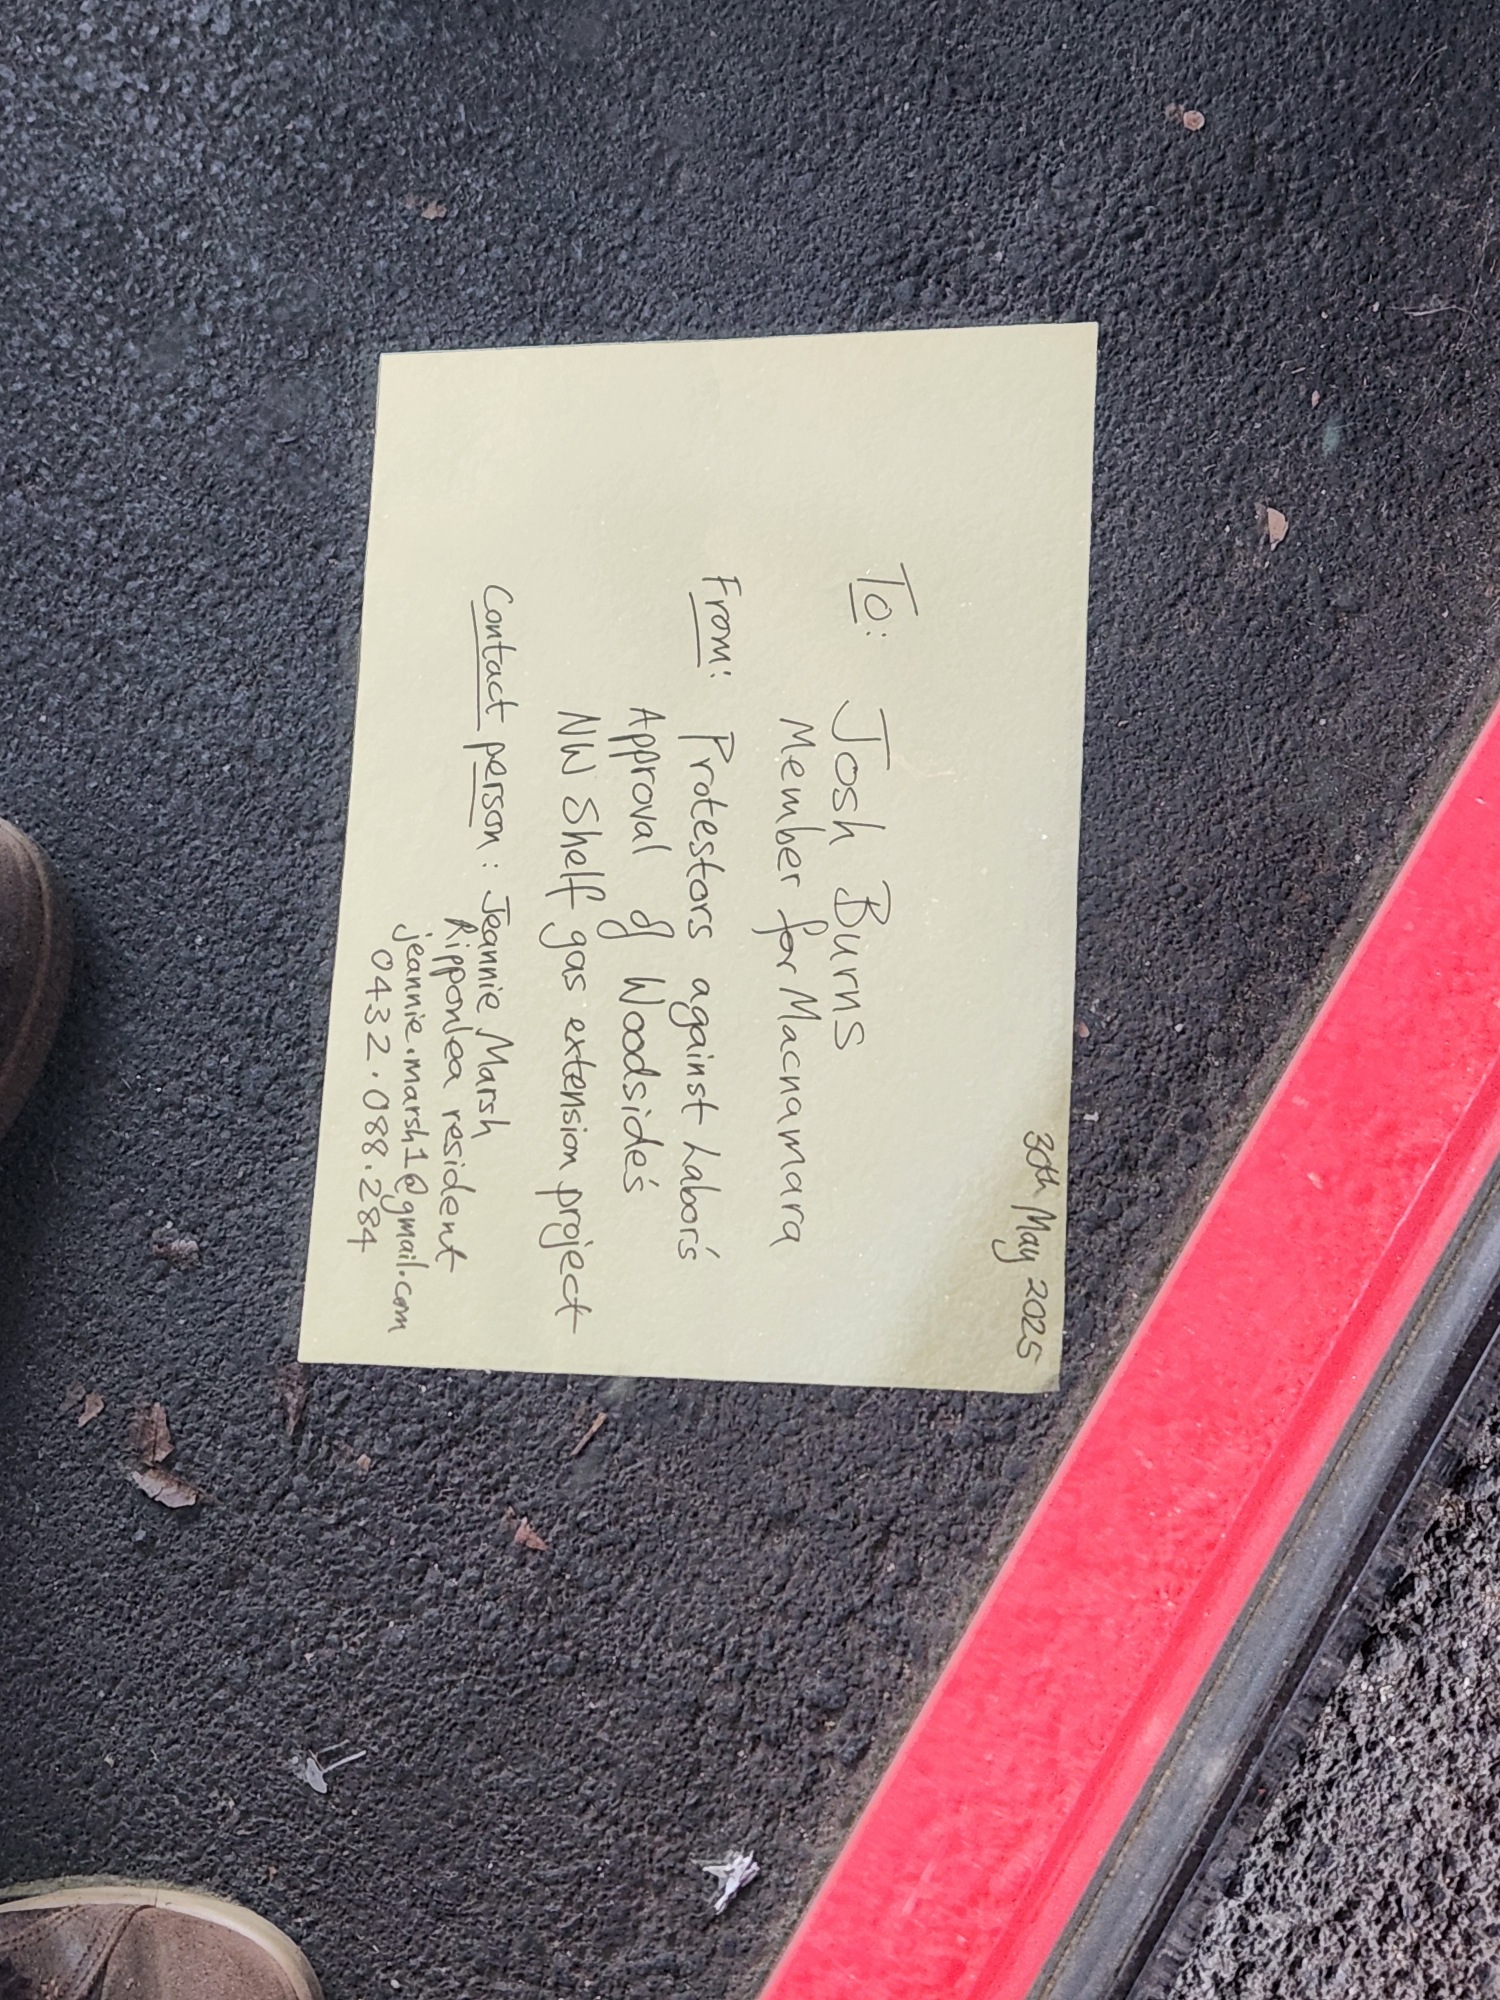 30th May 2025
To: Josh Burns
Member for Macnamara
From: Protestors against Labor's
Approval of Woodside's
NW Shelf gas extension project
Contact person: Jeannie Marsh
Ripponlea resident
jeannie.marsh1@gmail.com
0432.088.284